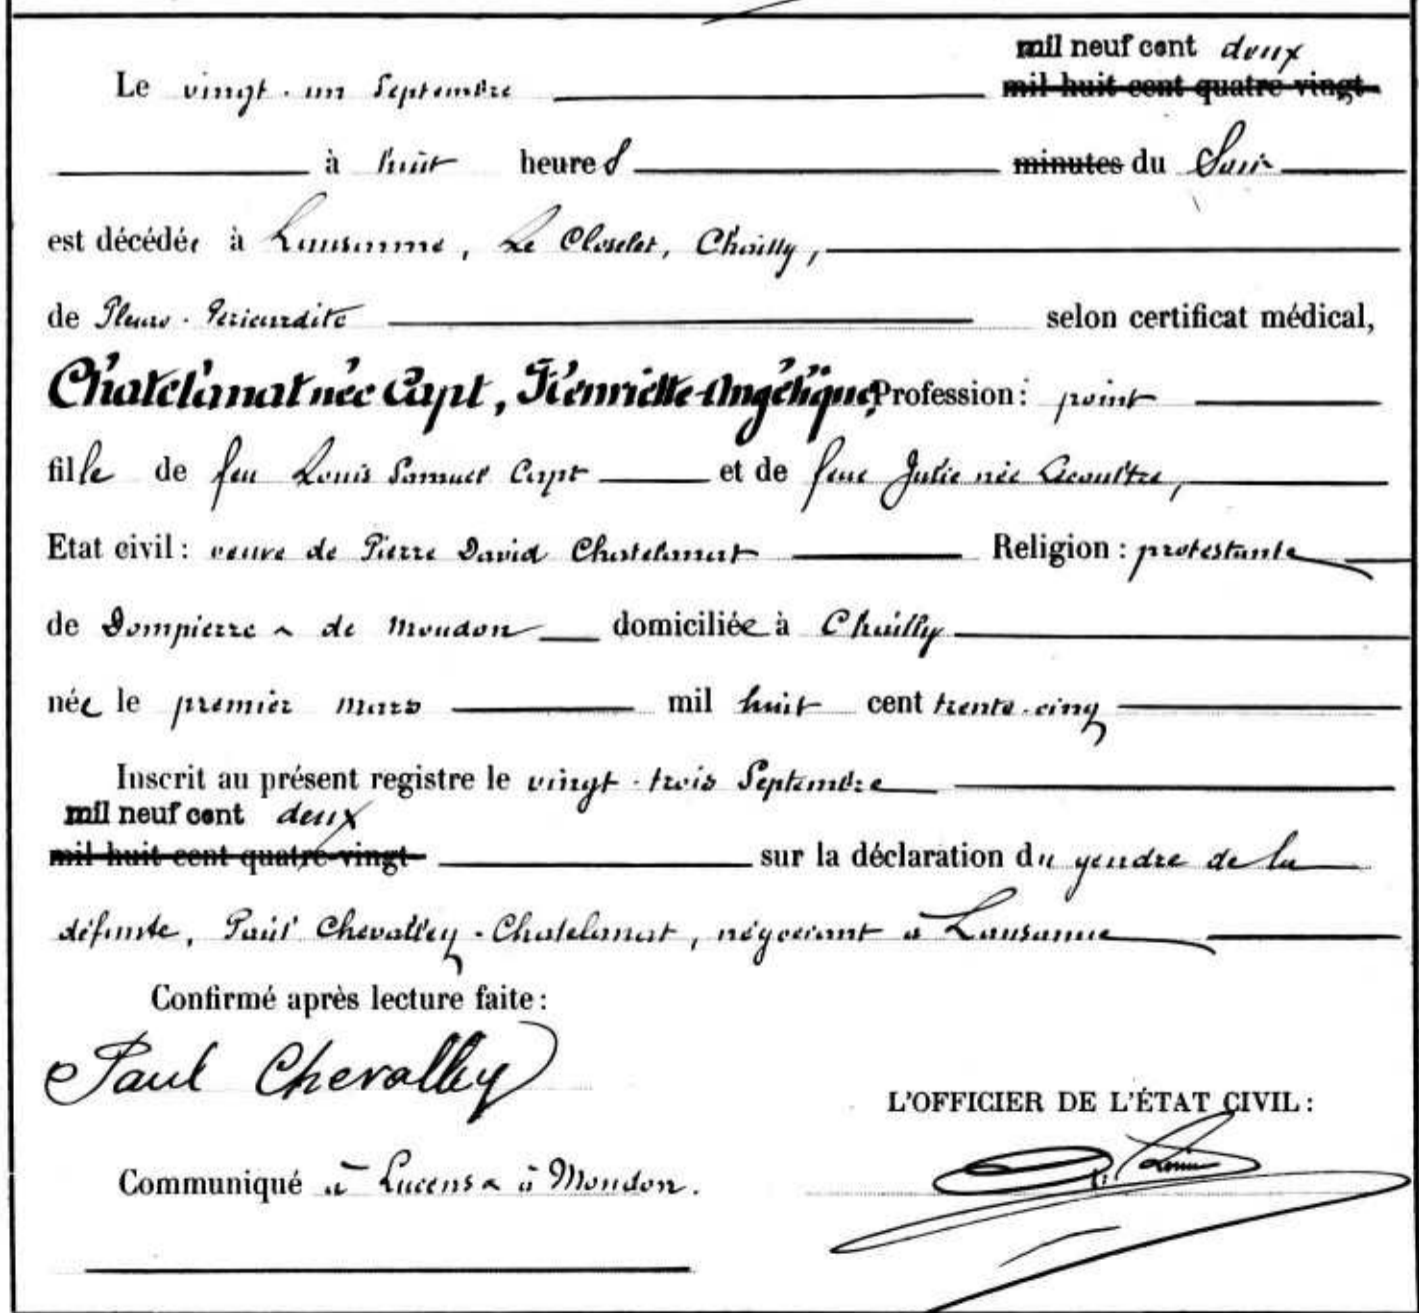 mil neuf cent deux
Le vingt-un Septembre mil huit cent quatre-vingt
à huit heures minutes du Soir
est décédée à Lausanne, Le Closelet, Chailly,
de Pleuro-Péricardite selon certificat médical,
Chatelanat née Capt, Henriette-Angélique, Profession : point
fille de feu Louis Samuel Capt et de feue Julie née Lecoultre,
Etat civil : veuve de Pierre David Chatelanat Religion : protestante
de Dompierre & de Moudon domiciliée à Chailly
née le premier mars mil huit cent trente-cinq
Inscrit au présent registre le vingt-trois Septembre
mil neuf cent deux
mil huit cent quatre-vingt sur la déclaration du gendre de la
défunte, Paul Chevalley-Chatelanat, négociant à Lausanne
Confirmé après lecture faite :
Paul Chevalley
L'OFFICIER DE L'ÉTAT CIVIL :
Communiqué à Lucens & à Moudon.